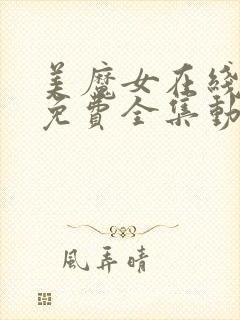 美魔女在线
免费全集動
風弄晴